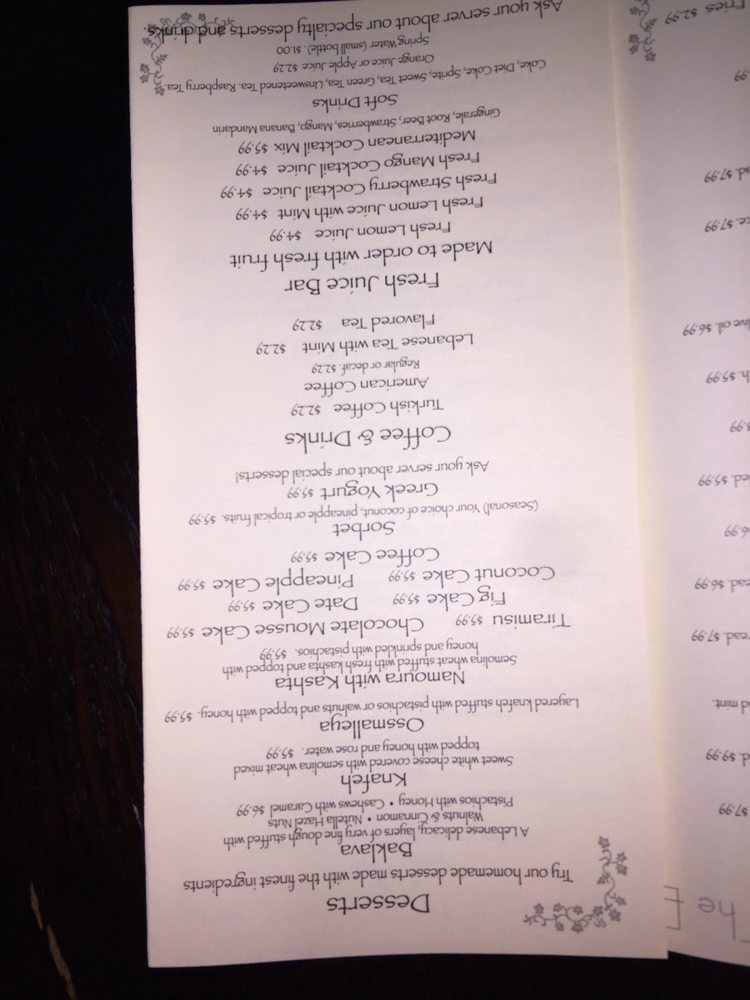 Desserts
Try our homemade desserts made with the finest ingredients
Baklava
A Lebanese delicacy, layers of very fine dough stuffed with
Walnuts & Cinnamon • Nutella Hazel Nuts
Pistachios with Honey • Cashews with Caramel $6.99
Knafeh
Sweet white cheese covered with semolina wheat mixed
topped with honey and rose water. $5.99
Ossmalleya
Layered knafeh stuffed with pistachios or walnuts and topped with honey. $5.99
Namoura with Kashta
Semolina wheat stuffed with fresh kashta and topped with
honey and sprinkled with pistachios. $5.99
Tiramisu $5.99 Chocolate Mousse Cake $5.99
Fig Cake $5.99 Date Cake $5.99
Coconut Cake $5.99 Pineapple Cake $5.99
Coffee Cake $5.99
Sorbet
(Seasonal) Your choice of coconut, pineapple or tropical fruits. $5.99
Greek Yogurt $5.99
Ask your server about our special desserts!
Coffee & Drinks
Turkish Coffee $2.29
American Coffee
Regular or decaf. $2.29
Lebanese Tea with Mint $2.29
Flavored Tea $2.29
Fresh Juice Bar
Made to order with fresh fruit
Fresh Lemon Juice $4.99
Fresh Lemon Juice with Mint $4.99
Fresh Strawberry Cocktail Juice $4.99
Fresh Mango Cocktail Juice $4.99
Mediterranean Cocktail Mix $5.99
Gingerale, Root Beer, Strawberries, Mango, Banana Mandarin
Soft Drinks
Coke, Diet Coke, Sprite, Sweet Tea, Green Tea, Unsweetened Tea. Raspberry Tea.
Orange Juice or Apple Juice $2.29
Spring Water (small bottle). $1.00
Ask your server about our specialty desserts and drinks.
$7.99
d. $9.99
d mint.
read. $7.99
ead. $6.99
$6.99
ed. $5.99
h. $5.99
live oil. $6.99
ce. $7.99
ad. $7.99
Fries $2.99